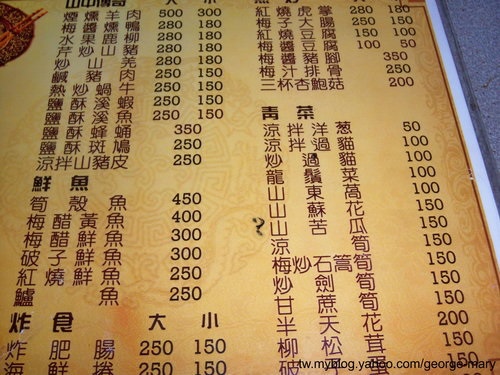 山中傳奇 大 小
煙燻羊肉 500 300
梅燻醬鴨 280 180
水果鹿柳 280 180
芹炒山豬 280 180
炒羌 250 150
鹹豬肉 250 150
熱炒蝸牛 250 150
鹽酥溪蝦 250 150
鹽酥蜂蛹 350
鹽酥斑鳩 250
涼拌山豬皮 250
鮮魚
筍殼魚 450
梅醋黃魚 400
梅醋鮮魚 300
破子鮮魚 300
紅燒鮮魚
鱸魚 250
炸食 大 小
炸肥腸 250 150
炸鮮捲 250 150
紅燒虎掌 280 180
梅子大腸 250 150
紅燒豆腐 150 100
梅醬豆腐 100 50
梅汁豬腳 350
梅醬排骨 250
三杯杏鮑菇 200
青菜
涼拌洋葱 50
涼拌過貓 100
炒過貓 100
龍鬚菜 100
山東萵 100
山蘇花 150
山苦瓜 150
涼筍 150
梅筍 150
炒石蒿筍 150
炒劍筍 150
甘蔗筍 150
半天花 200
柳松茸 150
tw.myblog.yahoo.com/george-mary